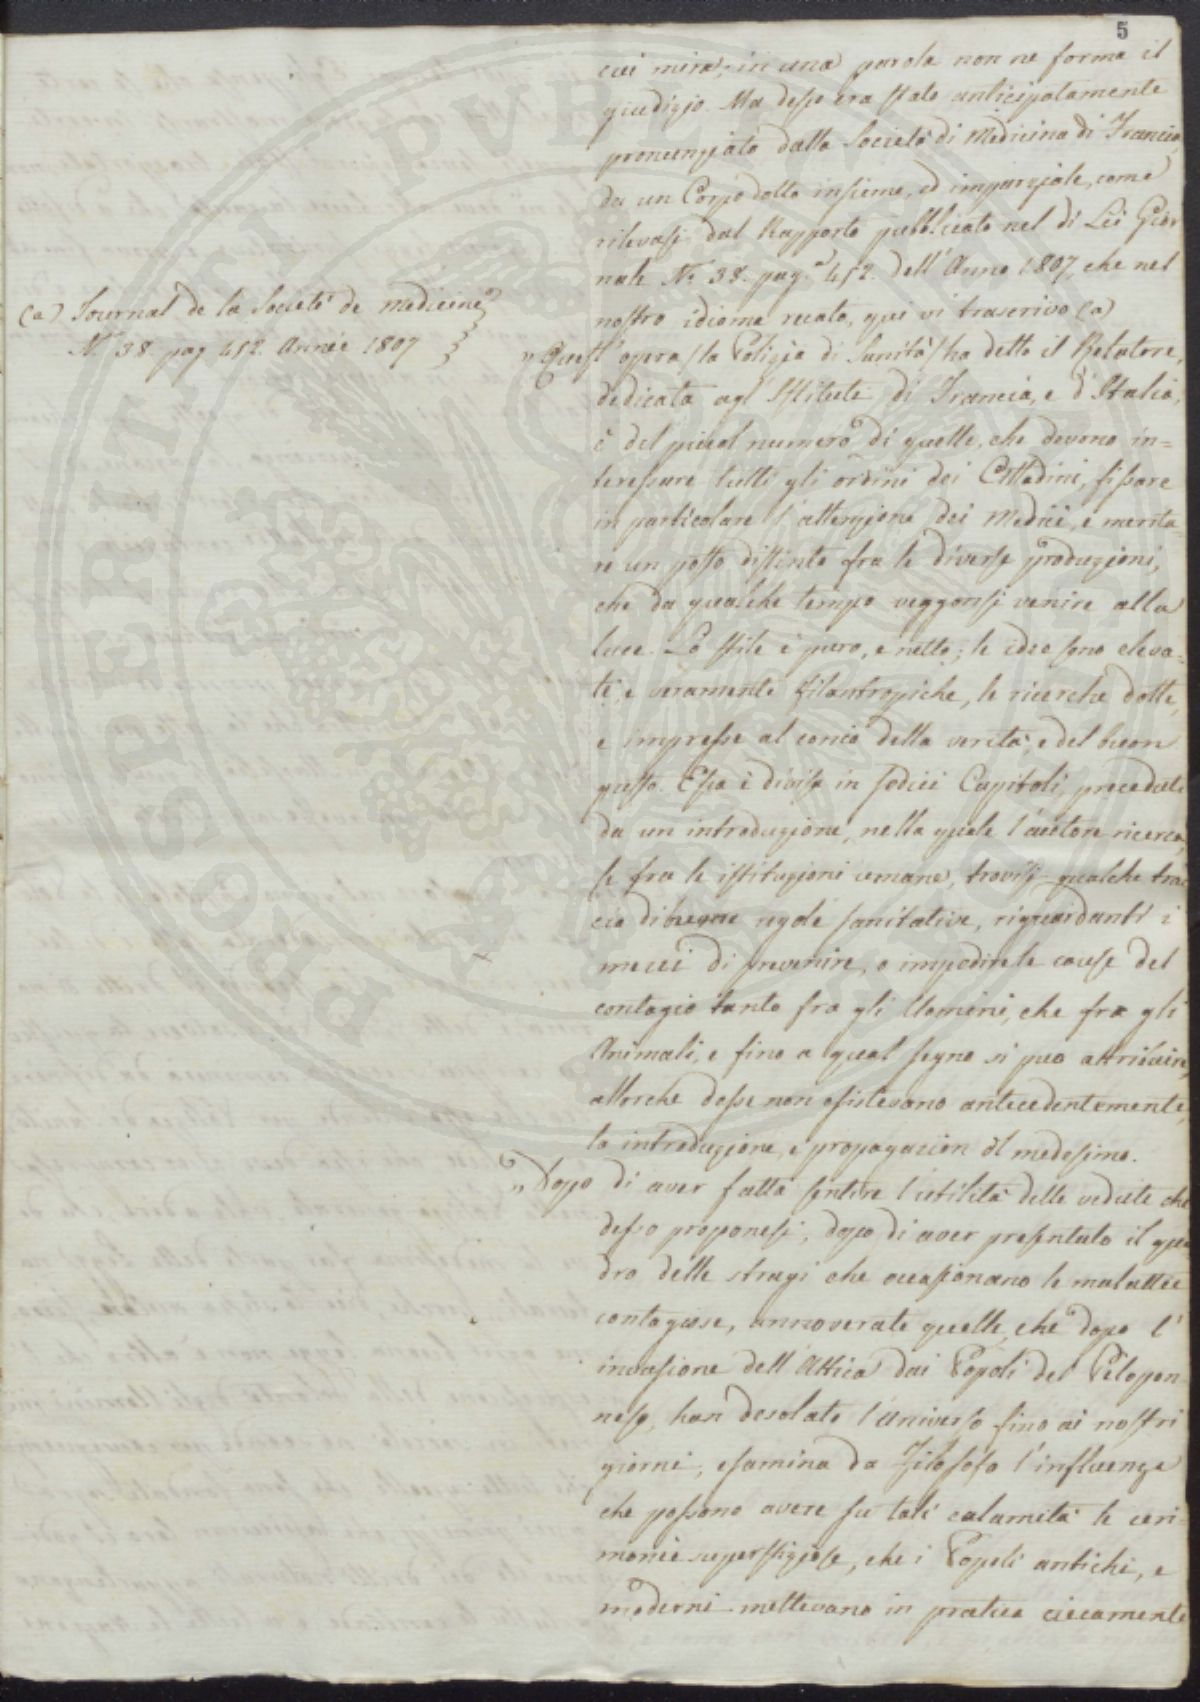 5
cui mira; in una parola non ne forma il
giudizio. Ma desso era stato anticipatamente
pronunziato dalla Società di Medicina di Francia,
da un Corpo dotto insieme, ed imparziale, come
rilevasi dal Rapporto pubblicato nel di Lei Gior
nale N.° 38. pag.ª 452. dell'Anno 1807, che nel
nostro idioma recato, qui vi trascrivo (a)
(a) Journal de la Societé de Medicine
N.° 38. pag 452. Année 1807
" Quest'opera (la Polizia di Sanità) ha detto il Relatore,
dedicata agl'Istituti di Francia, e d'Italia,
è del piccol numero di quelle, che devono in=
teressare tutti gli ordini dei Cittadini, fissare
in particolare l'attenzione dei Medici, e merita-
re un posto distinto fra le diverse produzioni,
che da qualche tempo veggonsi venire alla
luce. Lo stile è puro, e netto; le idee sono eleva-
te, e veramente filantropiche, le ricerche dotte,
e impresse al conio della verità, e del buon
gusto. Essa è divisa in sedici Capitoli, preceduti
da un introduzione, nella quale l'autore ricerca,
se fra le istituzioni umane, trovisi qualche trac
cia di regole sanitative, riguardanti i
mezzi di prevenire, o impedire le cause del
contagio tanto fra gli Uomini, che fra gli
Animali, e fino a qual segno si può attribuire,
allorche desse non esistevano antecedentemente,
la introduzione, e propagazion del medesimo.
" Dopo di aver fatta sentire l'utilità delle vedute che
desso proponesi, dopo di aver presentato il qua
dro delle stragi che occasionano le malattie
contagiose, annoverate quelle, che dopo l'
invasione dell'Attica dai Popoli del Pelopon-
neso, han desolato l'universo fino ai nostri
giorni, esamina da Filosofo l'influenza
che possono avere su tali calamità le ceri-
monie superstiziose, che i Popoli antichi, e
moderni mettevano in pratica ciecamente
POSPERITATI PVBLICAE